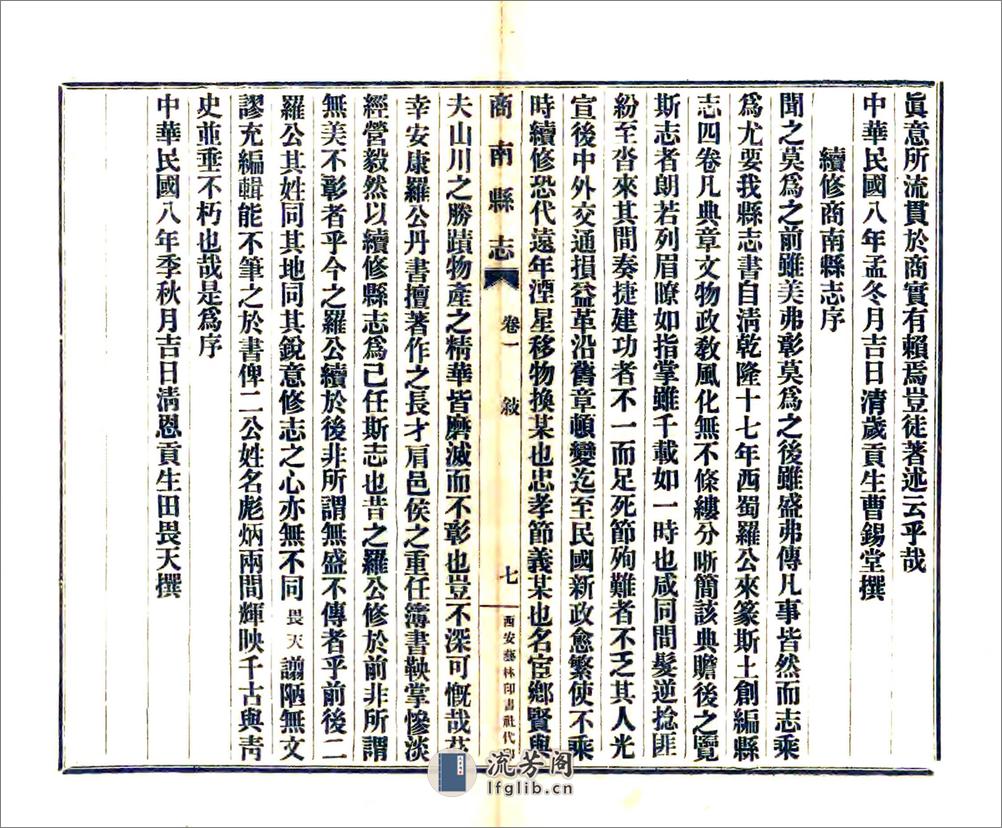 眞意所流貫於商實有賴焉豈徒著述云乎哉
中華民國八年孟冬月吉日清歲貢生曹錫堂撰
續修商南縣志序
聞之莫爲之前雖美弗彰莫爲之後雖盛弗傳凡事皆然而志乘
爲尤要我縣志書自淸乾隆十七年西蜀羅公來篆斯土創編縣
志四卷凡典章文物政敎風化無不條縷分晰簡該典贍後之覽
斯志者朗若列眉瞭如指掌雖千載如一時也咸同間髮逆捻匪
紛至沓來其間奏捷建功者不一而足死節殉難者不乏其人光
宣後中外交通損益革沿舊章頓變迄至民國新政愈繁使不乘
時續修恐代遠年湮星移物換某也忠孝節義某也名宦鄕賢與
商南縣志 卷一 敍 七 西安藝林印書社代印
夫山川之勝蹟物產之精華皆磨滅而不彰也豈不深可慨哉茲
幸安康羅公丹書擅著作之長才肩邑侯之重任簿書鞅掌慘淡
經營毅然以續修縣志爲己任斯志也昔之羅公修於前非所謂
無美不彰者乎今之羅公續於後非所謂無盛不傳者乎前後二
羅公其姓同其地同其銳意修志之心亦無不同畏天譾陋無文
謬充編輯能不筆之於書俾二公姓名彪炳兩間輝映千古與靑
史並垂不朽也哉是爲序
中華民國八年季秋月吉日淸恩貢生田畏天撰
流芳阁
lfglib.cn